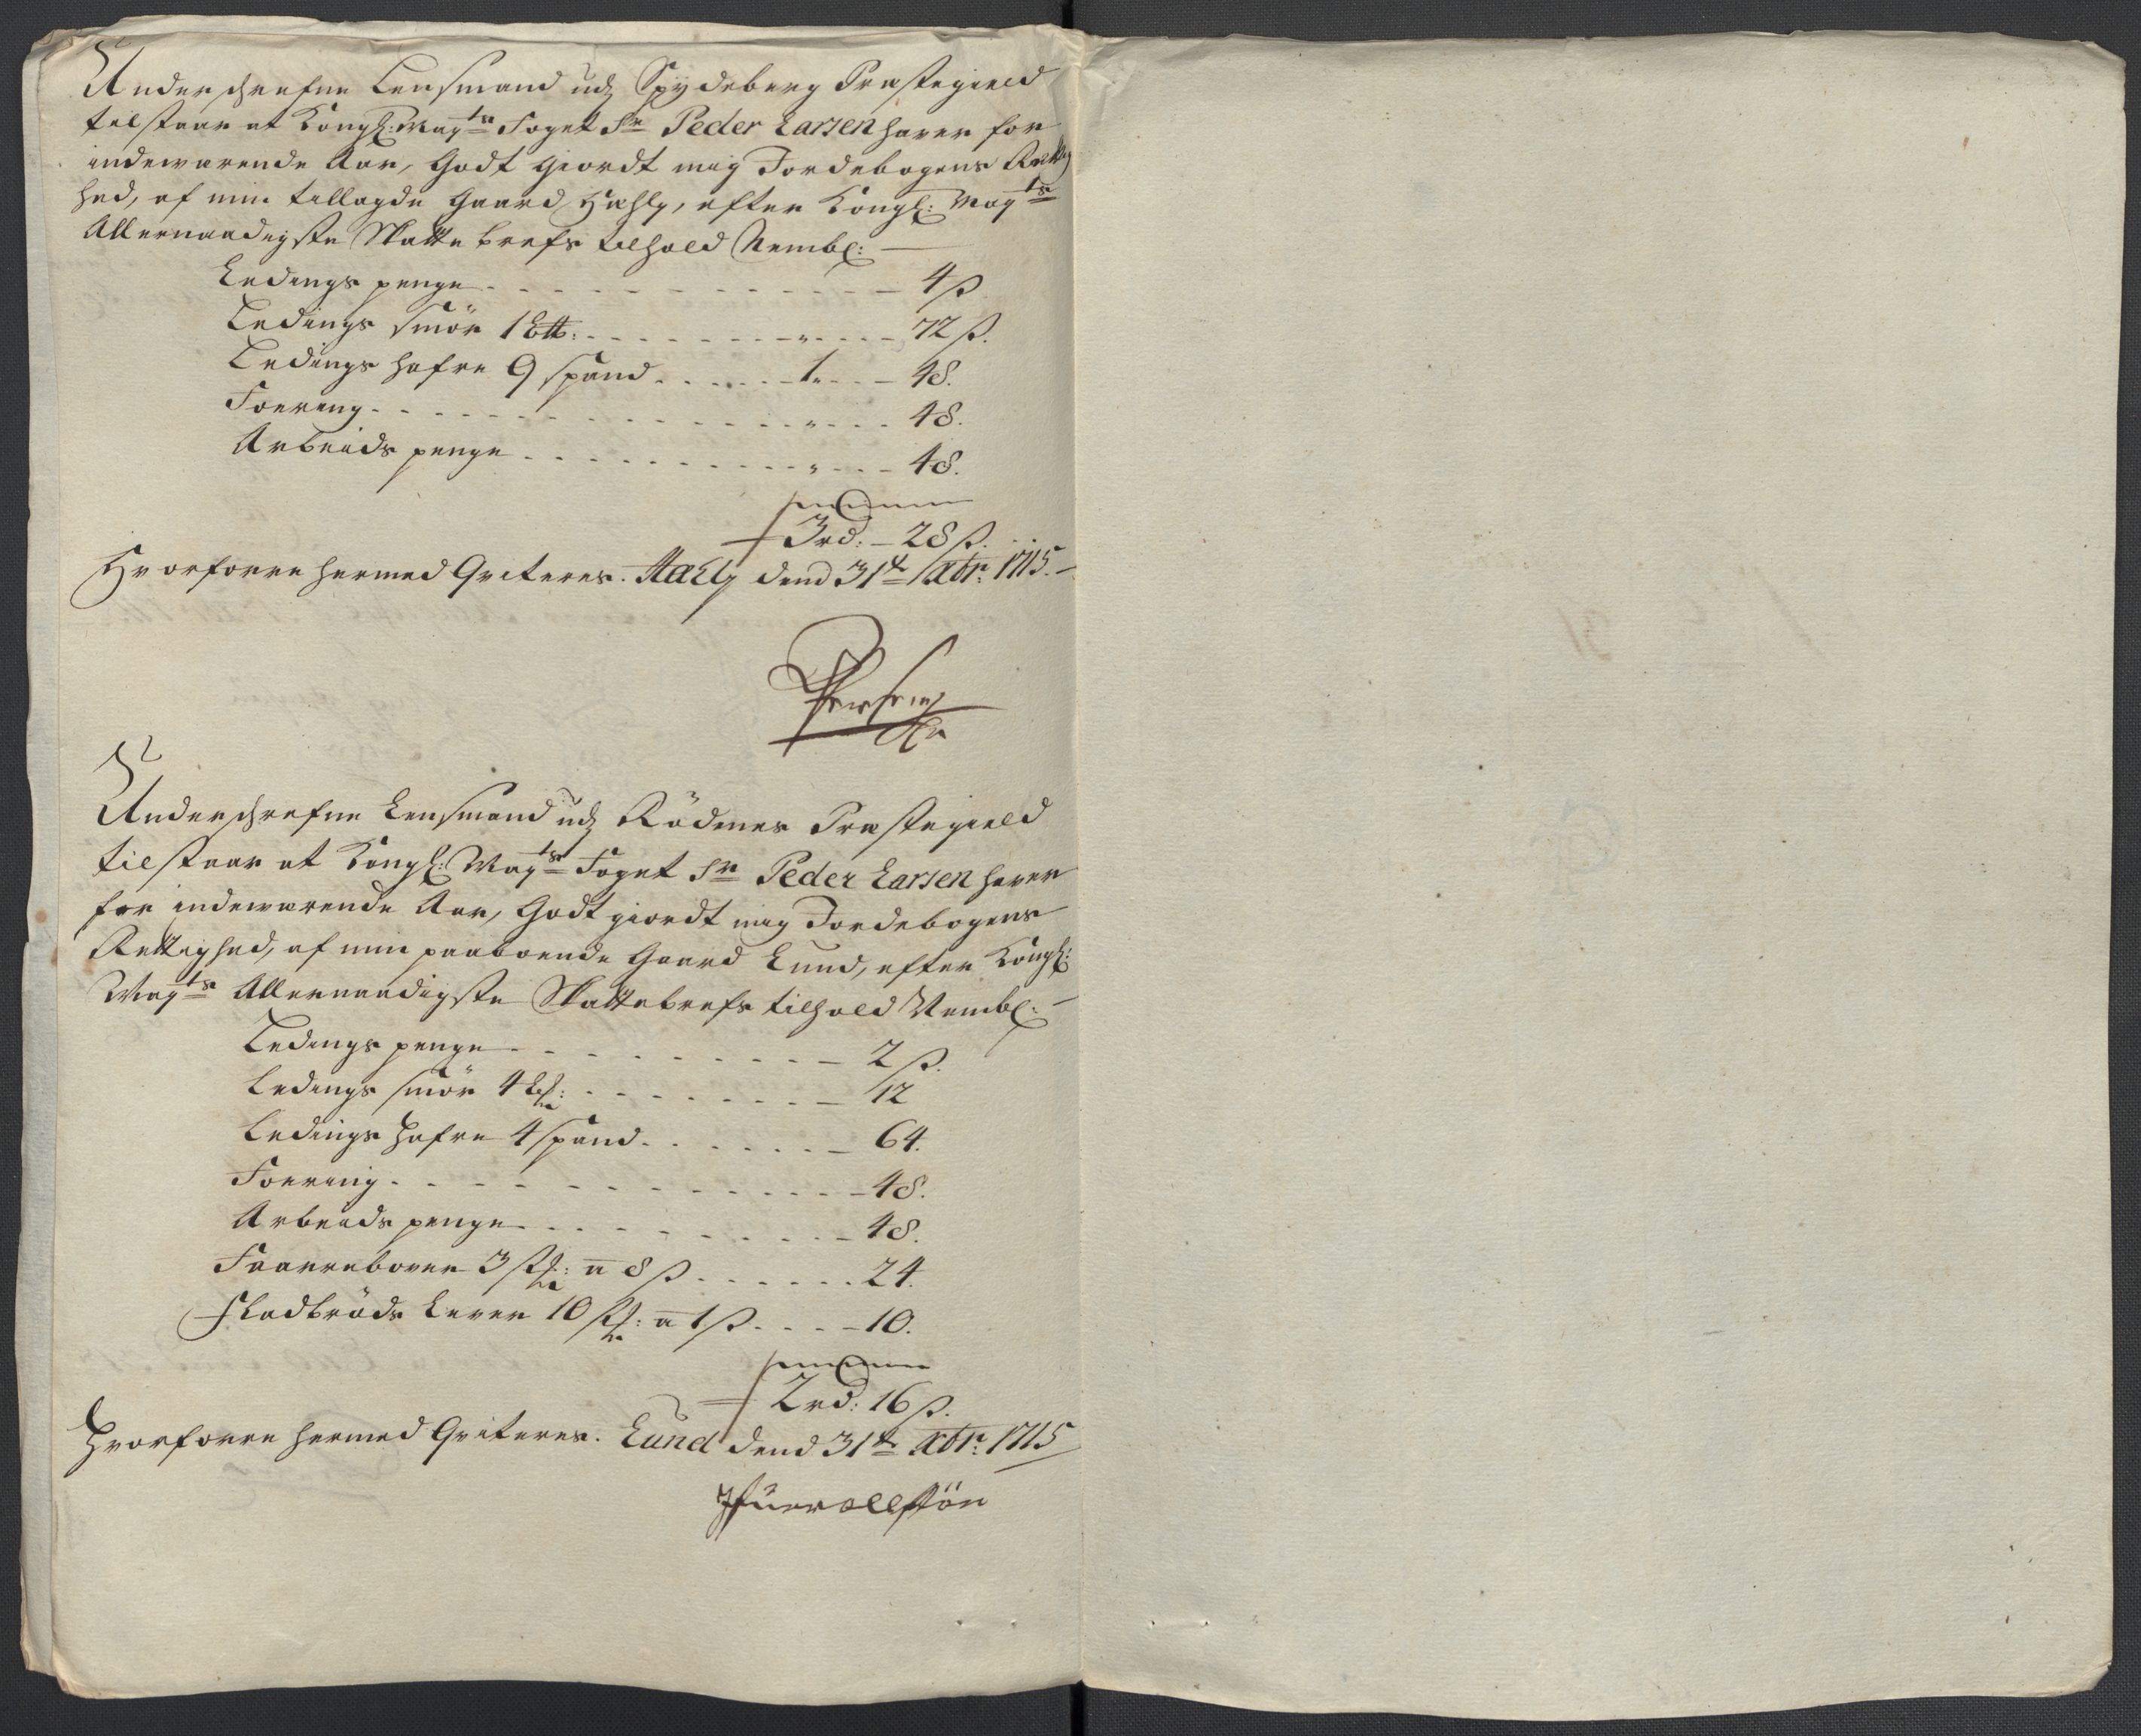 Underschrefne Lensmand udj Spydeberg Præstegield
tilstaar at Kongl: Mayts Foget Sr Peder Larsen haver for
indewærende Aar, Godt giordt mig Jordebogens Rettig
hed, af min tillagde Gaard Hæhly, efter Kongl: Mayts
Allernaadigste Skattebrefs tilhold Nembl: —
Ledings penge - - - 4 ß
Ledings Smör 1 Lttb: - - - „ - - 72 ß.
Ledings hafre 9 spand - - - 1 „ - - 48.
Foering - - - „ - - 48.
Arbeids penge - - - „ - - 48.
summa
3 rd: — 28 ß.
Hvorforre hermed Qviteres. Hæhly dend 31te Xbr: 1715. —
Underschrefne Lensmand udj Rödenes Præstegield
tilstaar at Kongl: Mayts Foget Sr Peder Larsen haver
for indewærende Aar, Godt giordt mig Jordebogens
Rettighed, af min paaboende Gaard Lund, efter Kongl:
Mayts Allernaadigste Skattebrefs tilhold Nembl: —
Ledings penge - - - 2 ß.
Ledings smör 4 - - - 12
Ledings hafre 4 spand - - - 64.
Foering - - - 48.
Arbeids penge - - - 48.
Faarrebover 3 st: a 8 ß - - - 24.
Fladbröds Lever 10 st: a 1 ß - - - 10.
summa
2 rd: 16 ß.
Hvorforre hermed Qviteres. Lund dend 31te Xbr: 1715